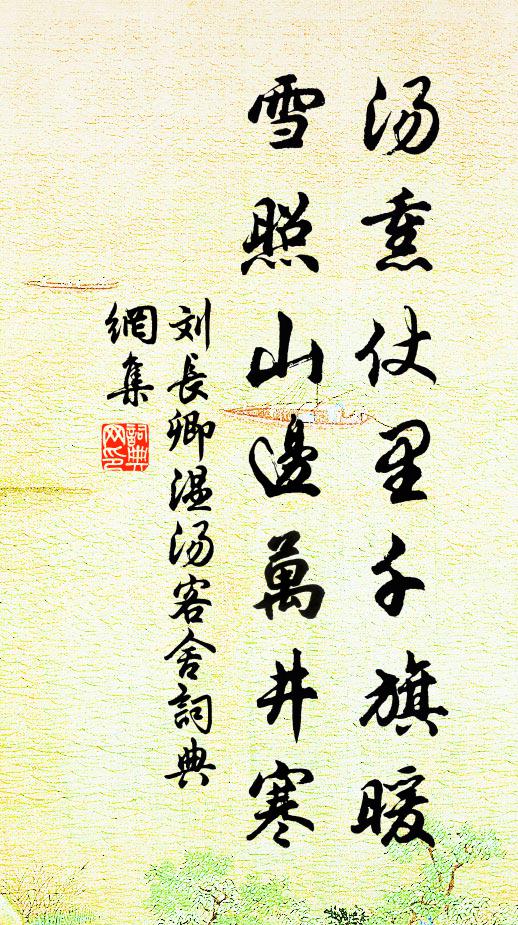 汤熏仗里千旗暖
雪照山邊萬井寒
刘長卿溫汤客舍詞典
網集
詞典
网印